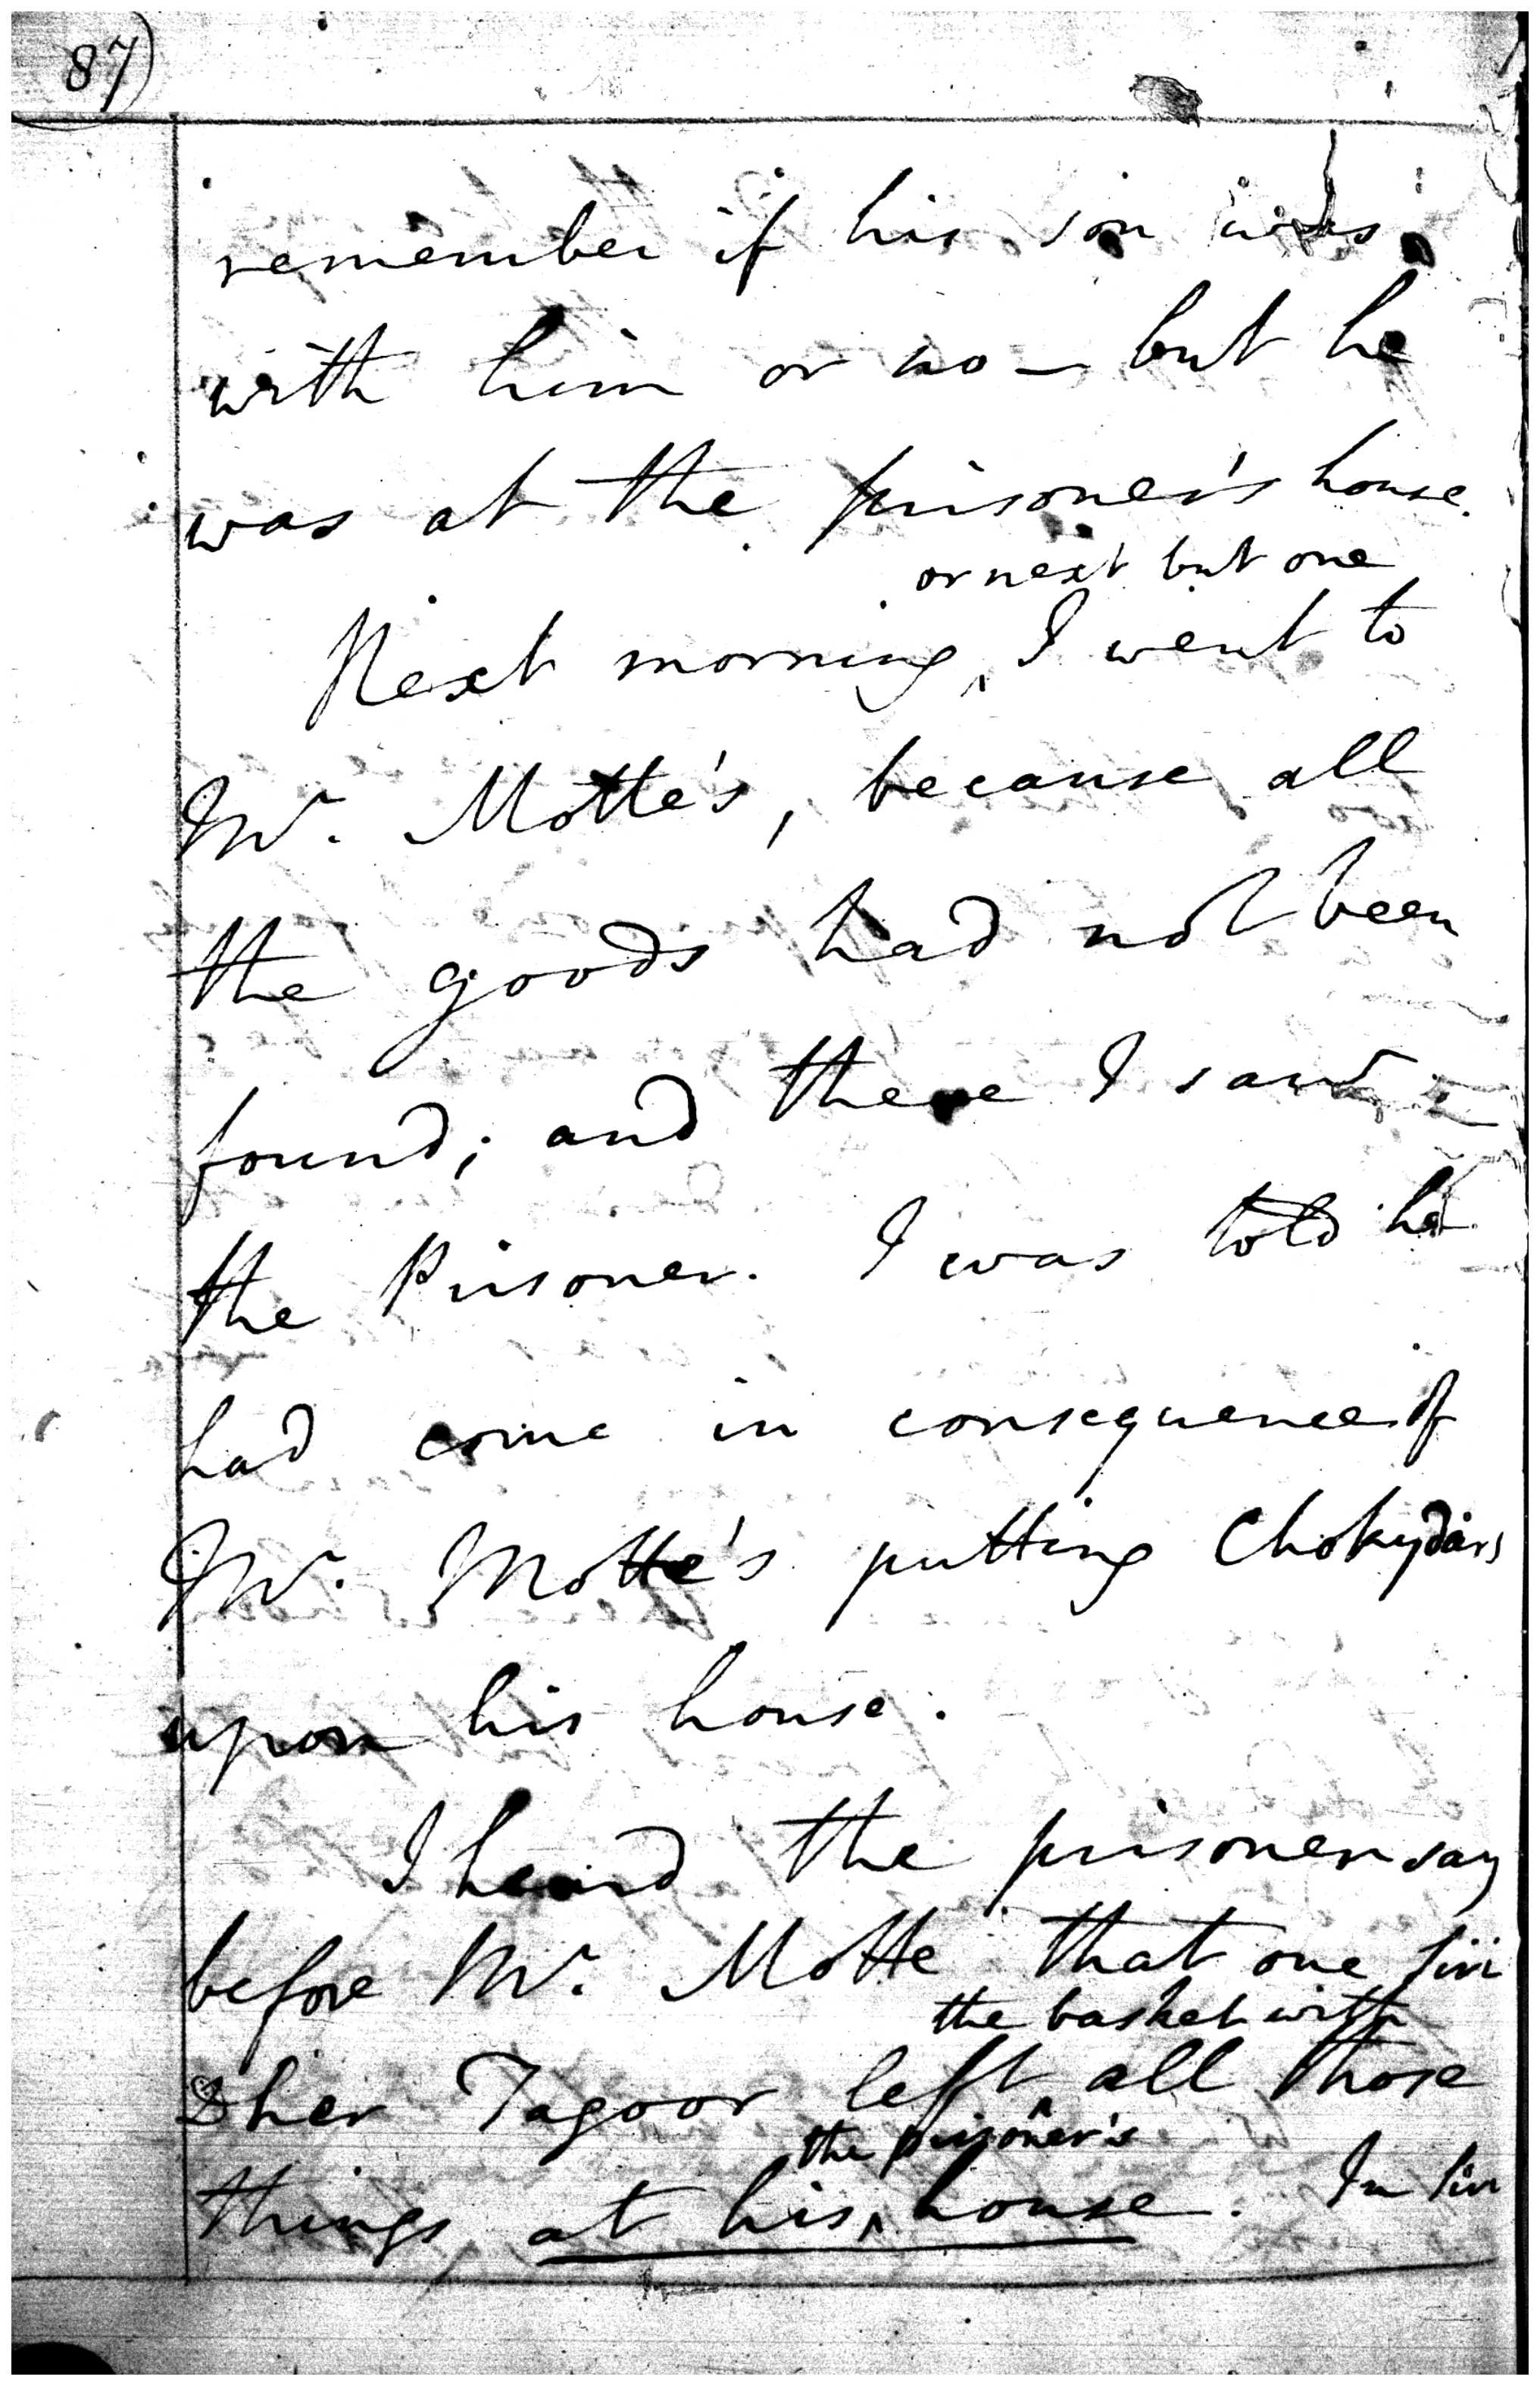 87)
remember if his son was
with him or no – but he
was at the prisoner's house.
or next but one
Next morning ^ I went to
Mr. Motte's, because all
the goods had not been
found; and there I saw
the Prisoner. I was told he
had come in consequence of
Mr. Motte's putting Chokydars
upon his house.
I heard the prisoner say
before Mr. Motte that one Siri
the basket with
Dher Tagoor left ^ all those
the prisoner's
things, at his ^ house. In Siri